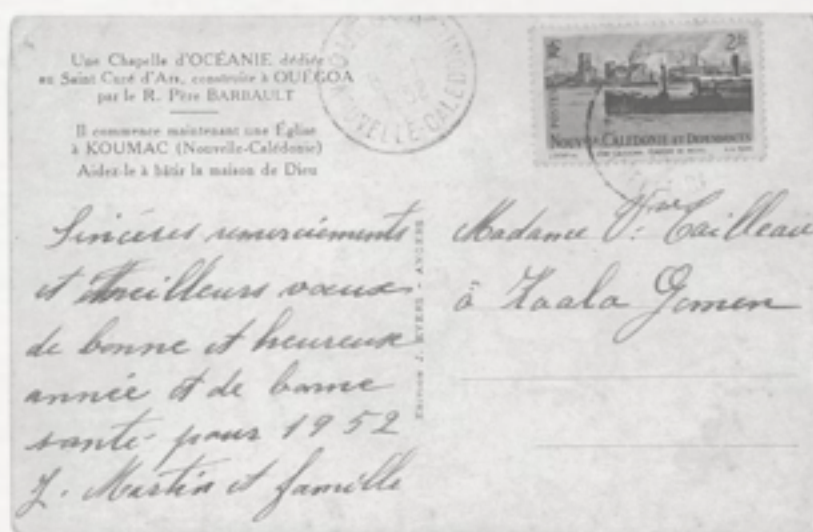 Une Chapelle d'OCÉANIE dédiée
au Saint Curé d'Ars, construite à OUÉGOA
par le R. Père BARBAULT
Il commence maintenant une Église
à KOUMAC (Nouvelle-Calédonie)
Aidez-le à bâtir la maison de Dieu
NOUVELLE-CALÉDONIE
2F
POSTES
NOUVELLE CALÉDONIE ET DÉPENDANCES
Sincères remerciements
et Meilleurs vœux
de bonne et heureuse
année et de bonne
santé pour 1952
J. Martin et famille
Edition J. EVERS - ANGERS
Madame Vve Cailleau
à Kaala Gomen